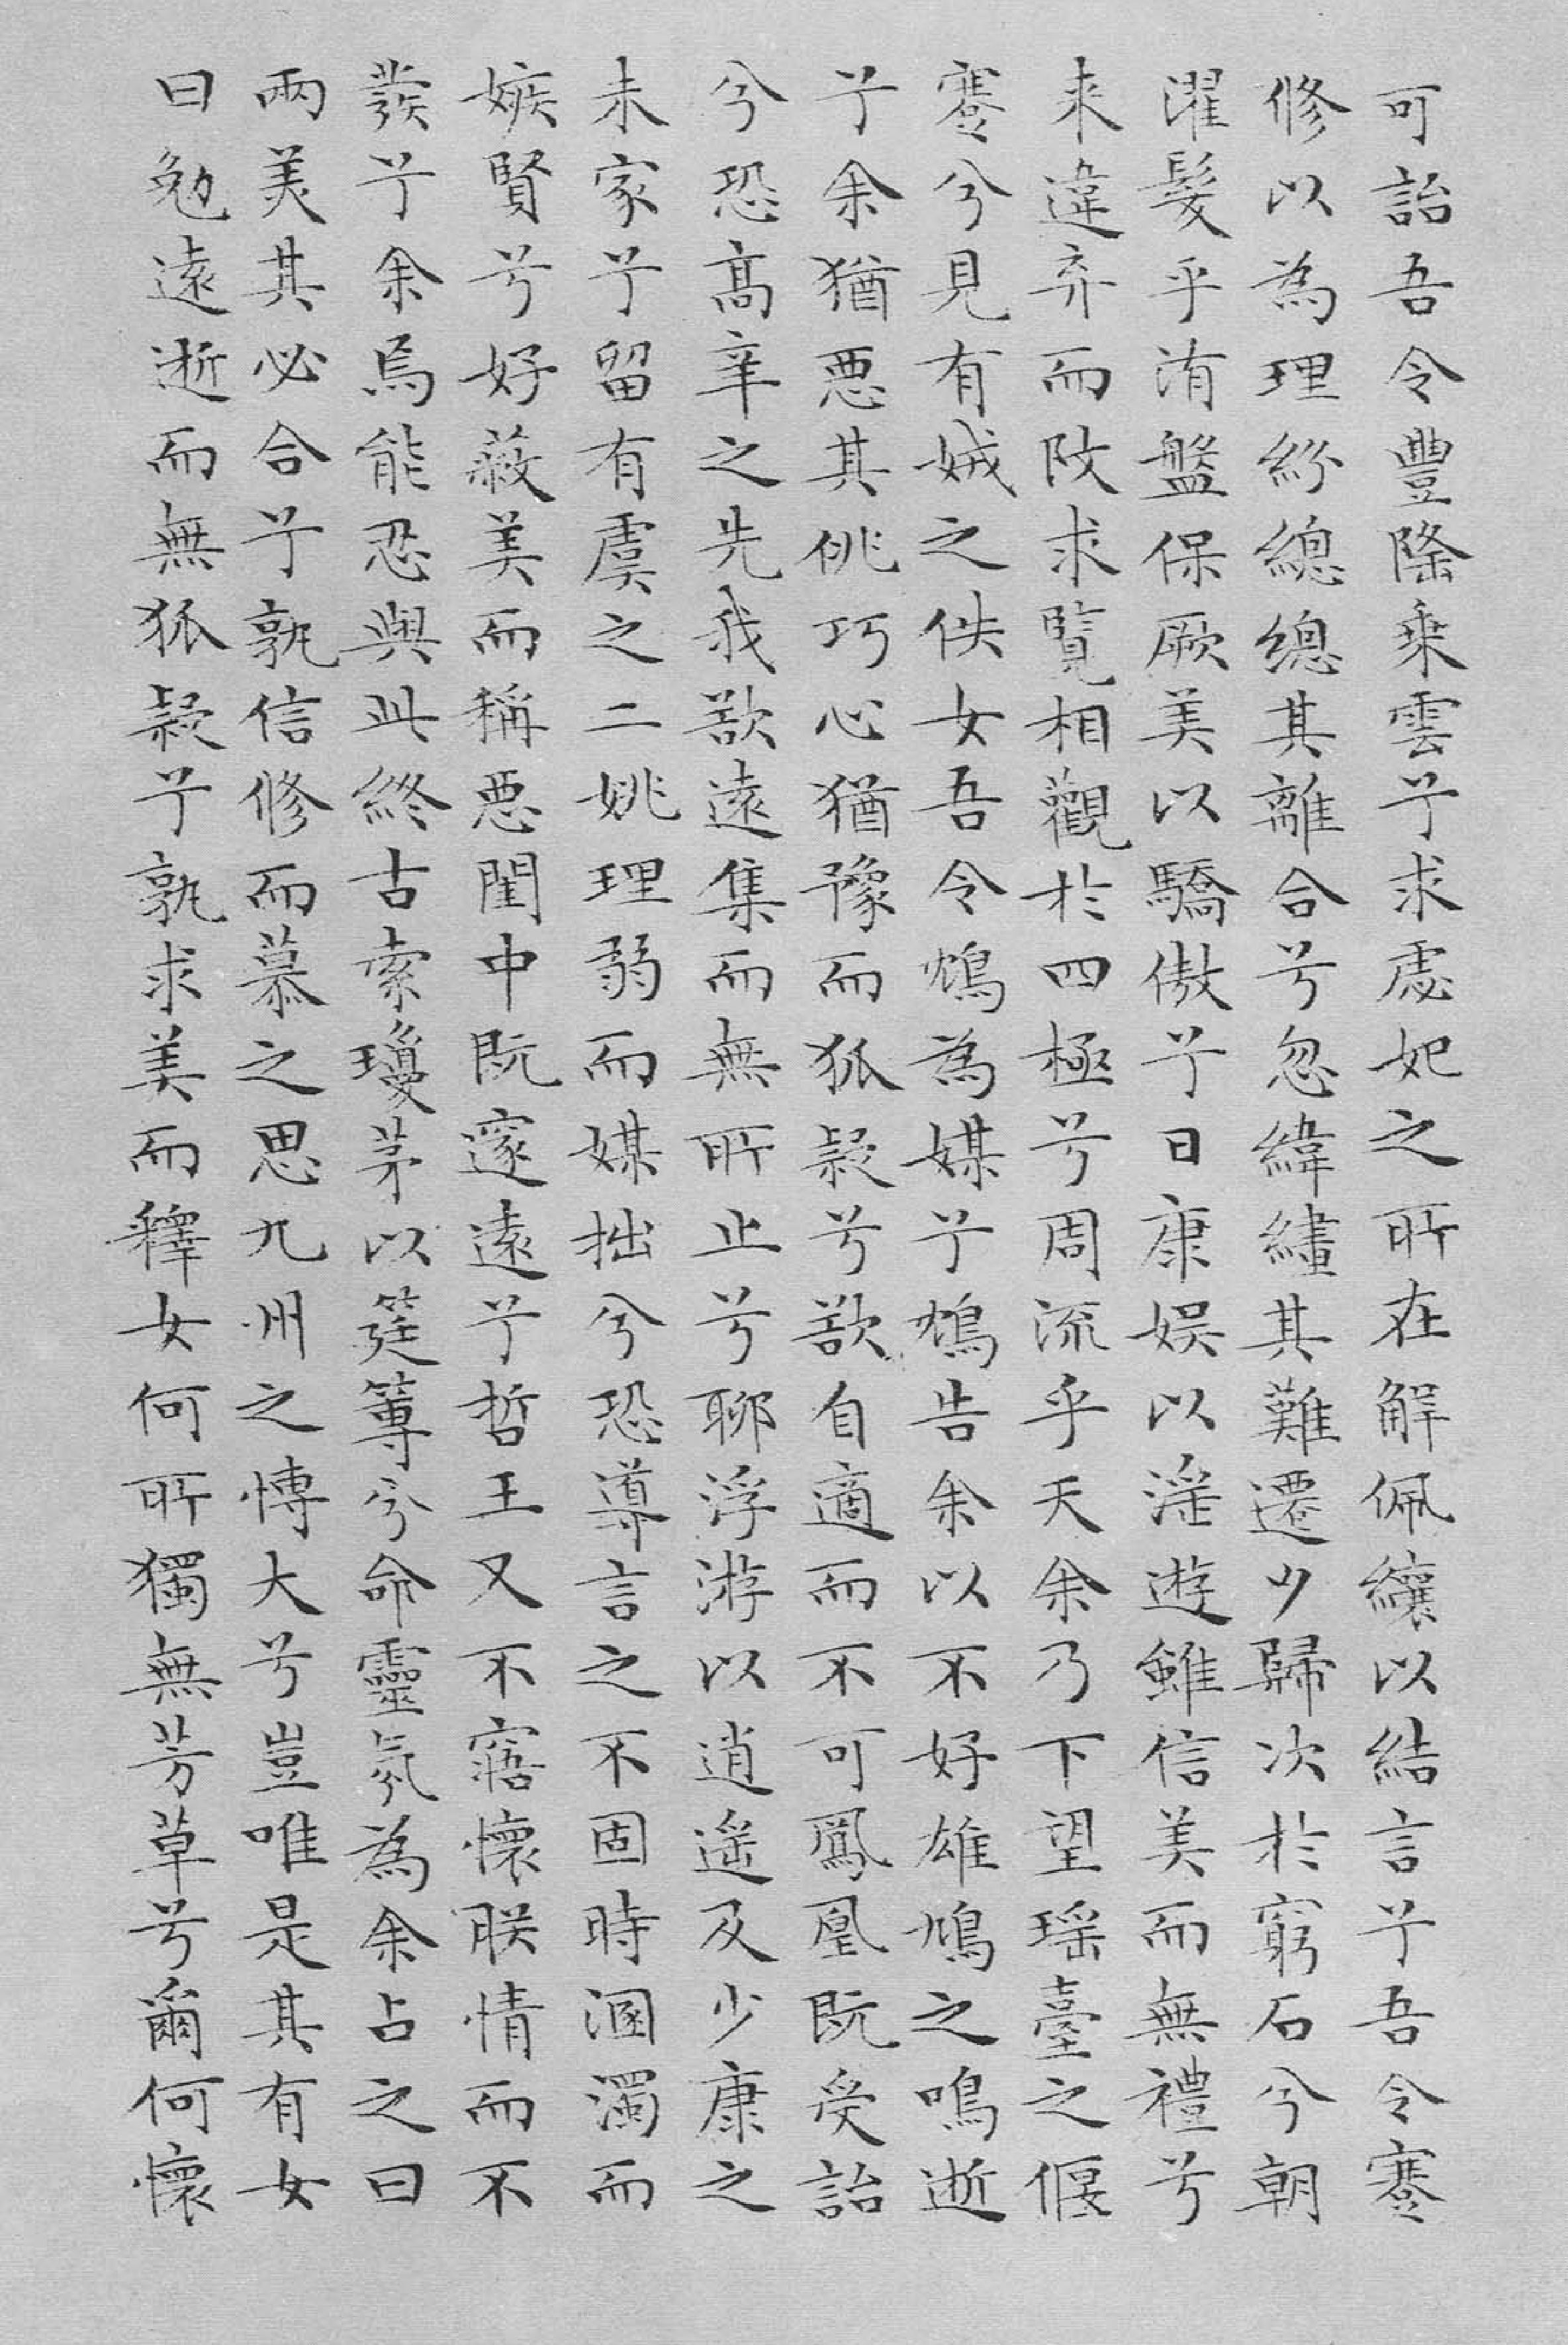 可詒吾令豐隆乘雲兮求虙妃之所在解佩纕以結言兮吾令蹇
修以為理紛總總其離合兮忽緯繣其難遷夕歸次於窮石兮朝
濯髮乎洧盤保厥美以驕傲兮日康娛以淫遊雖信美而無禮兮
來違弃而改求覽相觀於四極兮周流乎天余乃下望瑶臺之偃
蹇兮見有娀之佚女吾令鴆為媒兮鴆告余以不好雄鳩之鳴逝
兮余猶惡其佻巧心猶豫而狐疑兮欲自適而不可鳳凰既受詒
兮恐高辛之先我欲遠集而無所止兮聊浮游以逍遙及少康之
未家兮留有虞之二姚理弱而媒拙兮恐導言之不固時溷濁而
嫉賢兮好蔽美而稱惡閨中既邃遠兮哲王又不寤懷朕情而不
發兮余焉能忍與此終古索瓊茅以筳篿兮命靈氛為余占之曰
兩美其必合兮孰信修而慕之思九州之博大兮豈唯是其有女
曰勉遠逝而無狐疑兮孰求美而釋女何所獨無芳草兮爾何懷